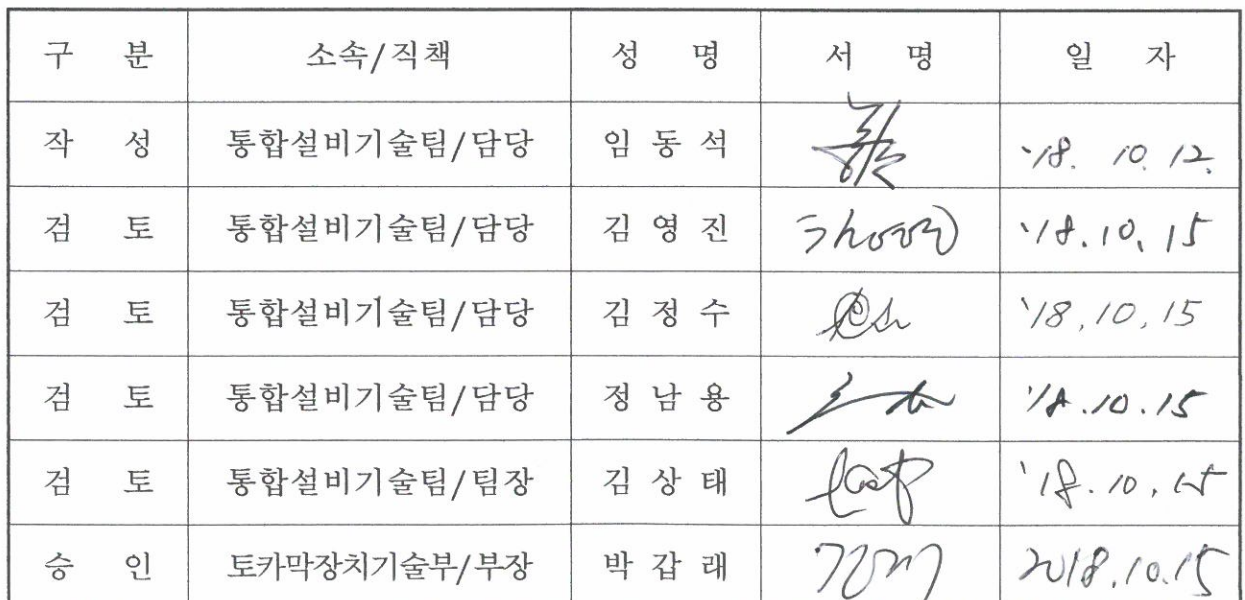 구 분 소속/직책 성 명 서 명 일 자
작 성 통합설비기술팀/담당 임 동 석 '18. 10. 12.
검 토 통합설비기술팀/담당 김 영 진 '18.10.15
검 토 통합설비기술팀/담당 김 정 수 '18.10.15
검 토 통합설비기술팀/담당 정 남 용 '18.10.15
검 토 통합설비기술팀/팀장 김 상 태 '18.10.15
승 인 토카막장치기술부/부장 박 갑 래 2018.10.15